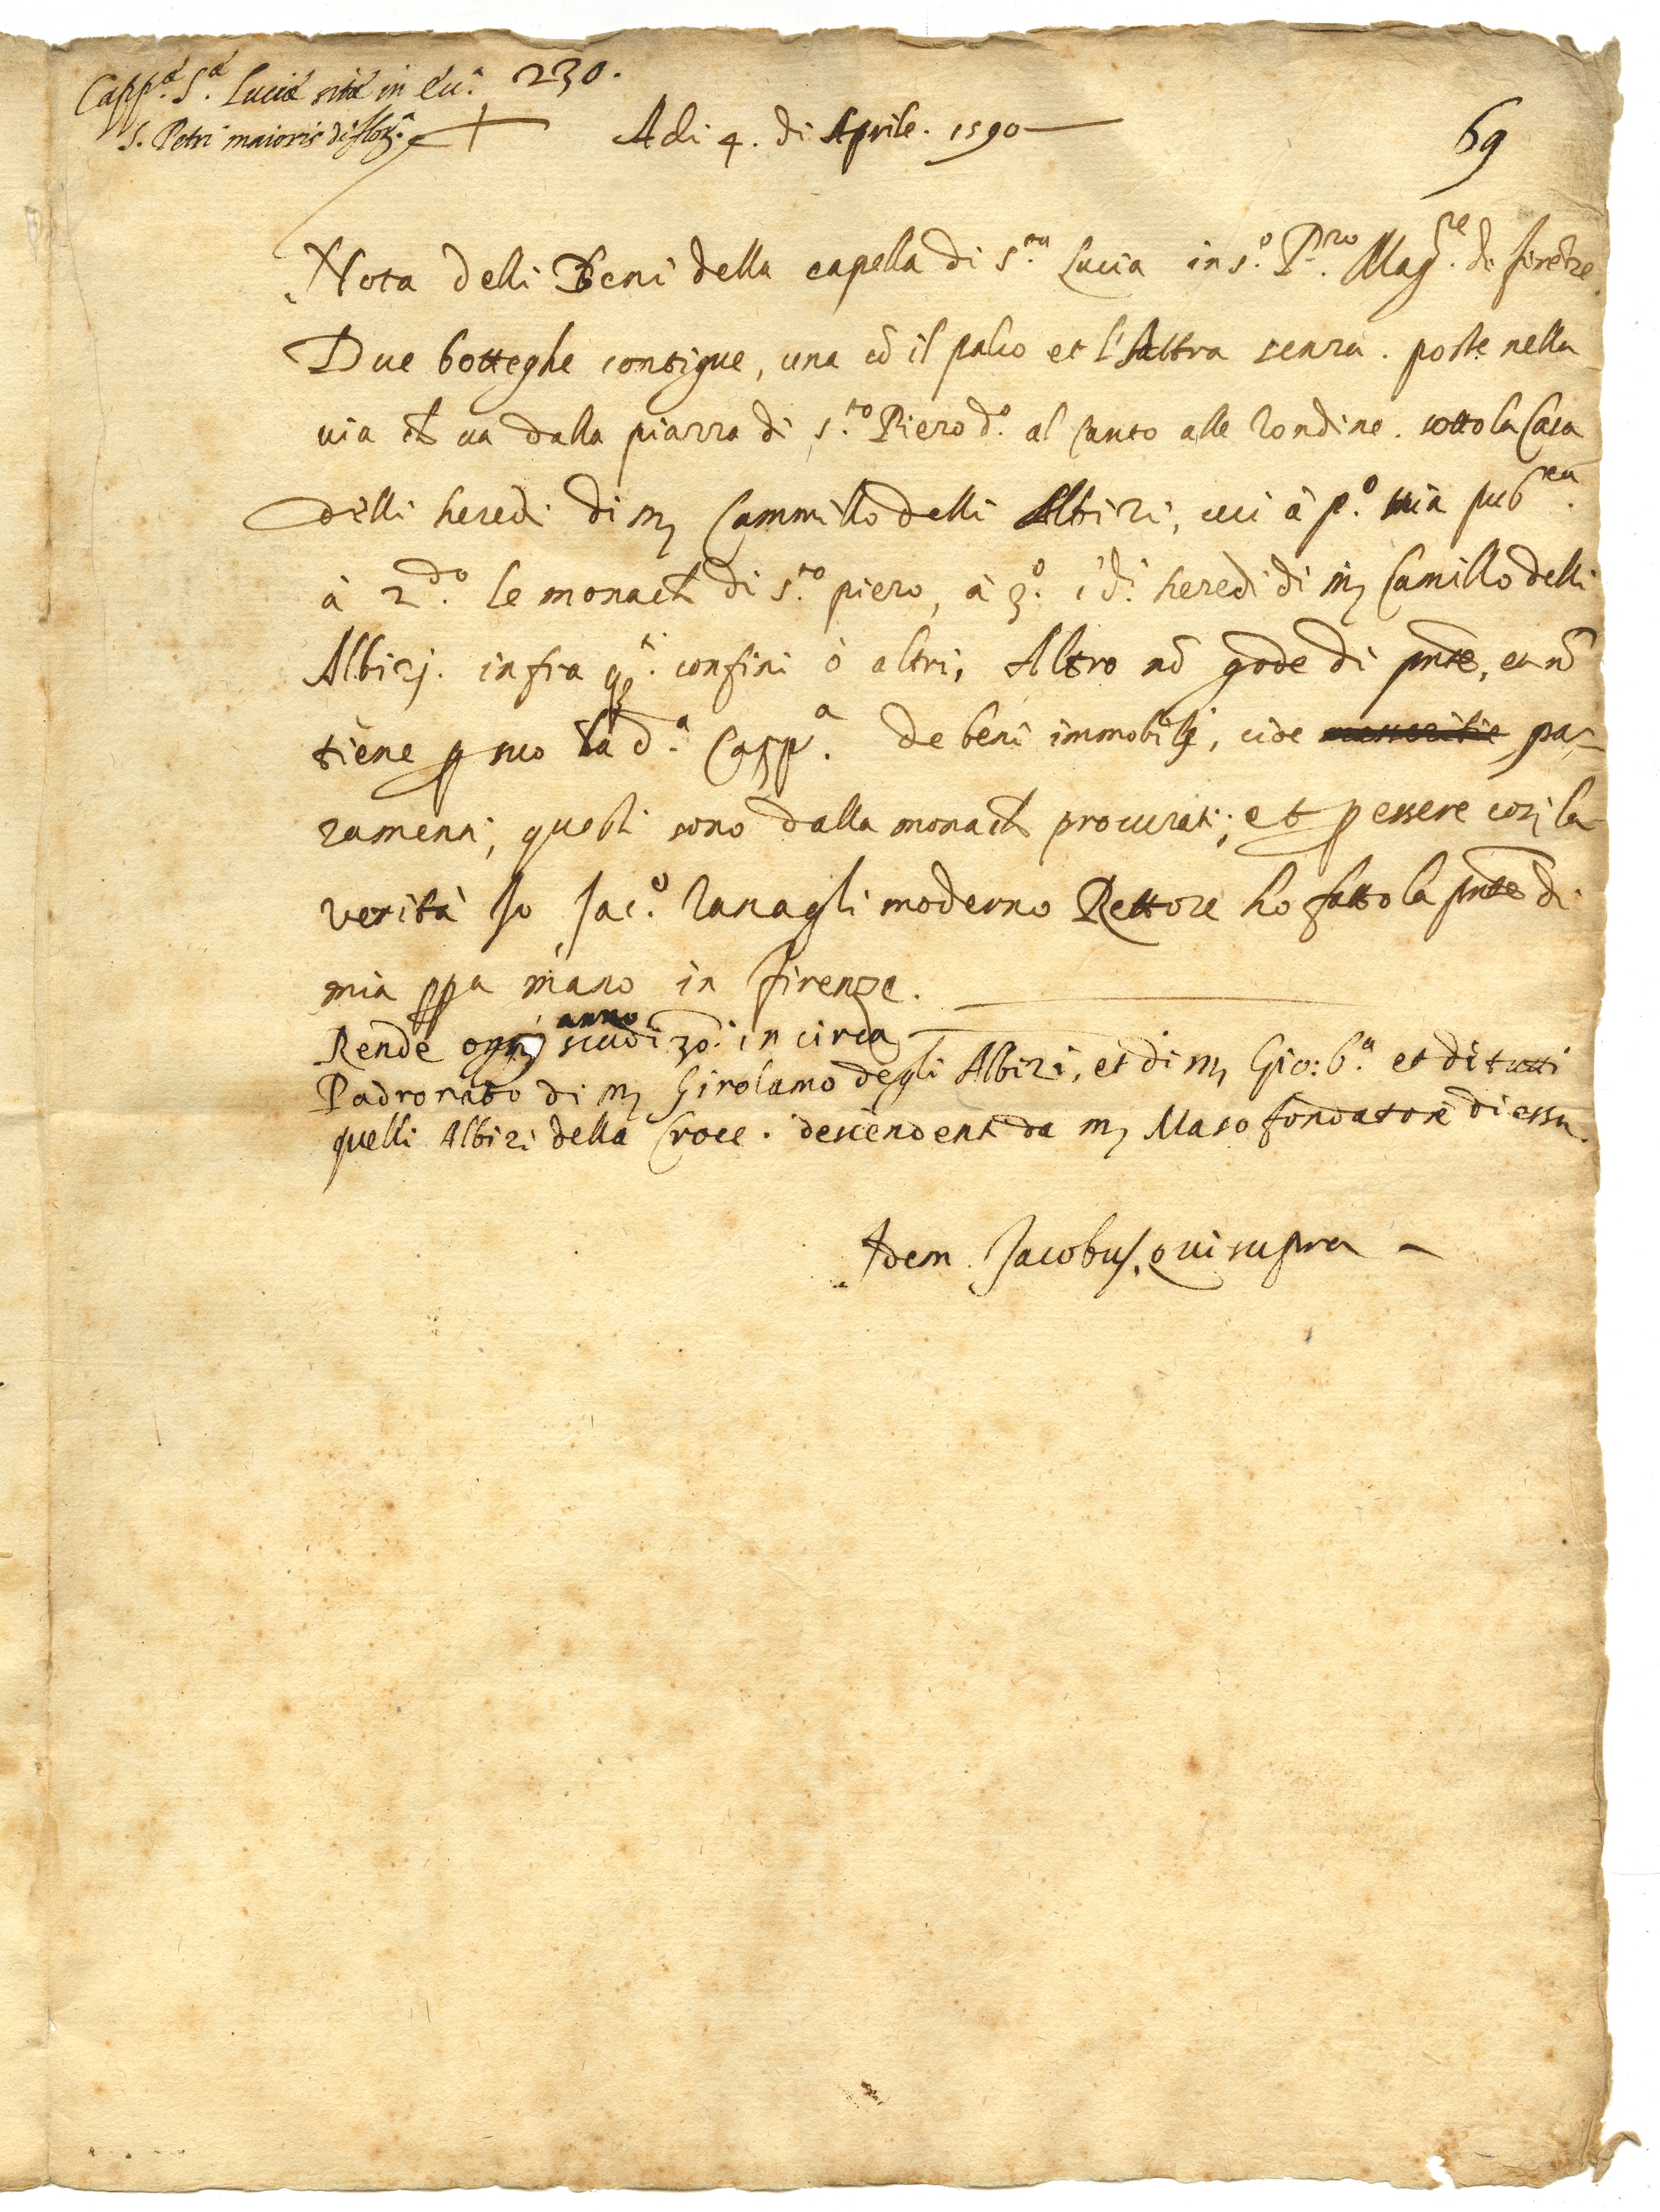 Capp.ᵃ S.ᵃ Luciæ sitæ in Eccl.ᵃ 230.
S. Petri maioris di flor.ᵃ
Adi 4. di Aprile. 1590
69
Nota delli Beni della capella di s.ᵗᵃ Lucia in s.ᵒ P.ʳᵒ Mag.ʳᵉ di firēze.
Due botteghe contigue, una cō il palco et l'Altra senza. poste nella
via ch va dalla piazza di s.ᵗᵒ Piero d.ᵒ al Canto alle Rondine. sotto la Casa
delli heredi di m Cammillo delli Albizi, cui à p.ᵒ via pub.ᶜᵃ
à 2.ᵈᵒ le monach di s.ᵗᵒ piero, à 3.ᵒ i d.ⁱ heredi di m Camillo delli
Albizj. infra q.ᵗⁱ confini ò altri, Altro nō gode di pnte, et nō
tiene p suo la d.ᵃ Capp.ᵃ de beni immobilj, cioe masseritie pa-
ramenti, questi sono dalla monach procurati; et p essere cosj la
verità Jo Jac.ᵒ Tanagli moderno Rettore ho fatto la pnte di
mia ppa mano in firenze.
Rende ognj anno scudi 30. in circa
Padronato di m Girolamo degli Albizi, et di m Gio: b.ᵃ et di tutti
quelli Albizi della Croce. descendenti da m Maso fondatore di essa.
Idem Jacobus, qui supra